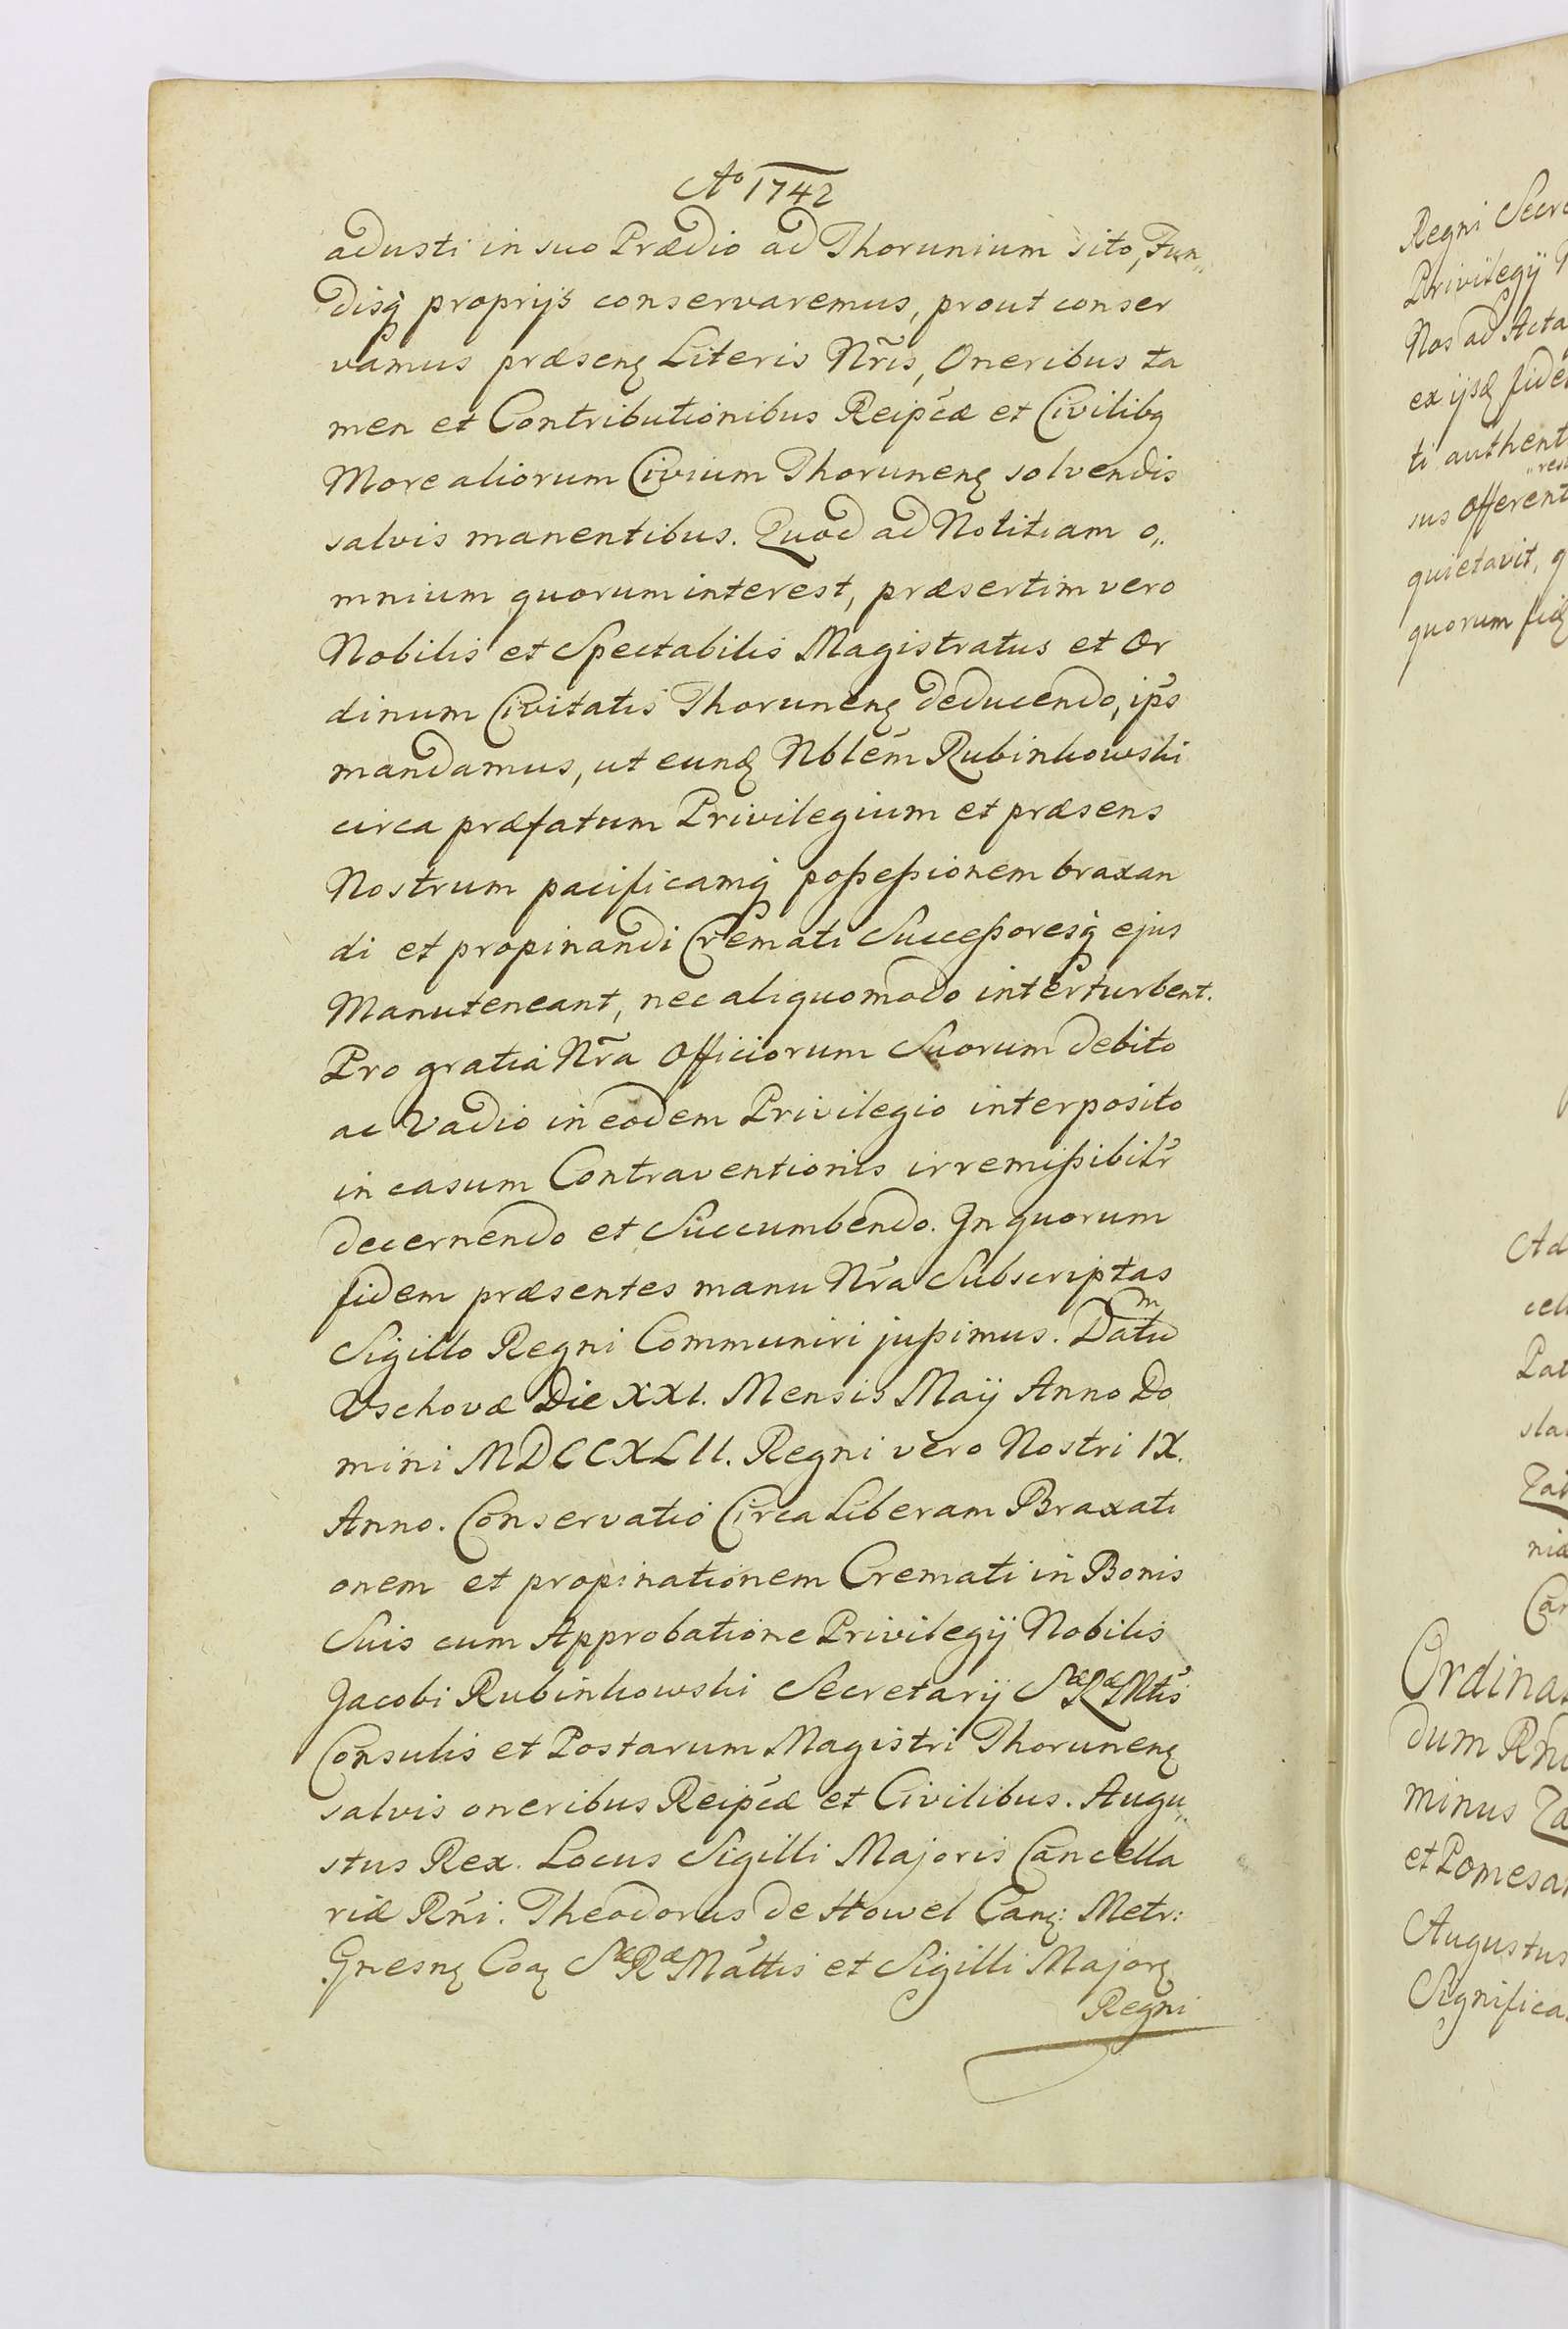 Aº 1742
adusti in suo Prædio ad Thorunium sito, Fun„
disq̃ proprijs conservaremus, prout conser
vamus præsenꝫ Literis Nr̃is, Oneribus ta
men et Contributionibus Reipćæ et Civilibꝫ
More aliorum Civium Thorunenꝫ solvendis
salvis manentibus. Quod ad Notitiam o„
mnium quorum interest, præsertim vero
Nobilis et Spectabilis Magistratus et Or
dinum Civitatis Thorunenꝫ deducendo, ips
mandamus, ut eundꝫ Nblem Rubinkowski
circa præfatum Privilegium et præsens
Nostrum pacificamq̃ poßeßionem braxan
di et propinandi Cremati Succeßoresq̃ ejus
Manuteneant, nec aliquomodo interturbent.
Pro gratia Nr̃a Officiorum Suorum debito
ac Vadio in eodem Privilegio interposito
in casum Contraventionis irremißibilr
decernendo et Succumbendo. In quorum
fidem præsentes manu Nr̃a Subscriptas
Sigillo Regni Communiri jußimus. Datum
Vschovæ Die XXI. Mensis Maÿ Anno Do
mini MDCCXLII. Regni vero Nostri IX.
Anno. Conservatio Circa Liberam Braxati
onem et propinationem Cremati in Bonis
Suis cum Approbatione Privilegÿ Nobilis
Jacobi Rubinkowski Secretarÿ Sæ Ræ Mtis
Consulis et Postarum Magistri Thorunenꝫ
salvis oneribus Reipćæ et Civilibus. Augu„
stus Rex. Locus Sigilli Majoris Cancella
riæ Rńi. Theodorus de Howel Canꝫ: Metr:
Gnesnꝫ Coaꝫ Sæ Ræ Mattis et Sigilli Majorꝫ
Regni
Regni Secre
Privilegÿ
Nos ad Acta
ex ijsdꝫ fide
ti authent
sus Offerent
quietavit, q
quorum fidꝫ
Ad
Pat
Ordinar
dum Rñ
minus
et Pomesan
Augustus
Significa